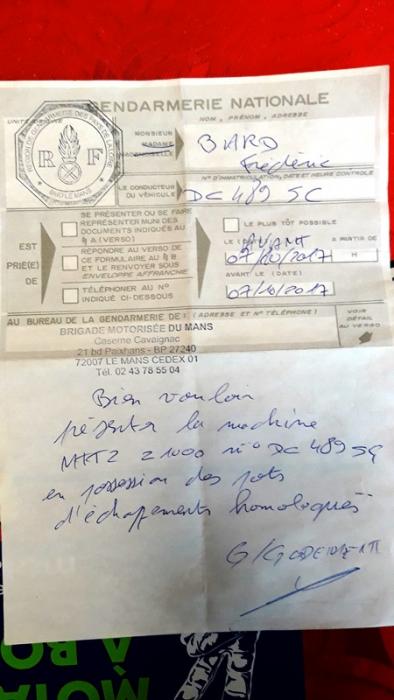 GENDARMERIE NATIONALE
NOM, PRÉNOM, ADRESSE
MONSIEUR
MADAME
MADEMOISELLE
BIARD
Frédéric
R F
BMO LE MANS
LE CONDUCTEUR
DU VÉHICULE
N° D'IMMATRICULATION, DATE ET HEURE CONTROLE
DC 489 SC
EST
PRIÉ(E)
DE
SE PRÉSENTER OU SE FAIRE
REPRÉSENTER MUNI DES
DOCUMENTS INDIQUÉS AU
§ A (VERSO)
RÉPONDRE AU VERSO DE
CE FORMULAIRE AU § B
ET LE RENVOYER SOUS
ENVELOPPE AFFRANCHIE
TÉLÉPHONER AU N°
INDIQUÉ CI-DESSOUS
LE PLUS TÔT POSSIBLE
LE AVANT A PARTIR DE
07/10/2017 H
AVANT LE (DATE)
07/10/2017
AU BUREAU DE LA GENDARMERIE DE: (ADRESSE ET N° TÉLÉPHONE)
VOIR
DÉTAIL
AU VERSO
BRIGADE MOTORISÉE DU MANS
Caserne Cavaignac
21 bd Paixhans - BP 27240
72007 LE MANS CEDEX 01
Tél. 02 43 78 55 04
Bien vouloir
présenter la machine
Z 1000 n° DC 489 SC
en possession des pots
d'échappements homologués